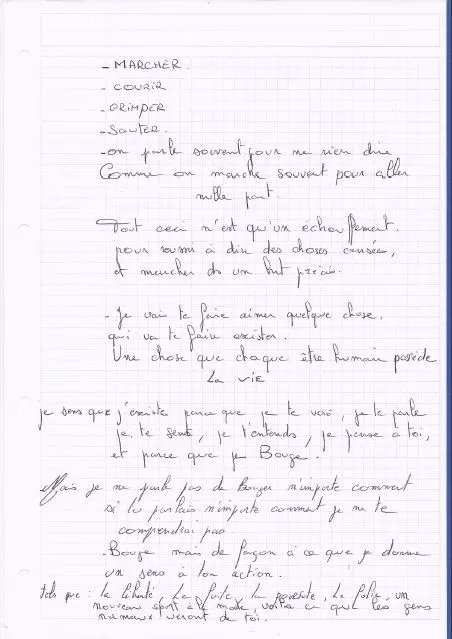 - MARCHER.
- COURIR
- GRIMPER
- SAUTER.
- on parle souvent pour ne rien dire
Comme on marche souvent pour aller
nulle part.
Tout ceci n'est qu'un échauffement.
pour réussi à dire des choses censées,
et marcher ds un but précis.
- Je vais te faire aimer quelque chose,
qui va te faire exister.
Une chose que chaque être humain possède
La vie
je sens que j'existe parce que je te vois, je te parle
je te sens, je t'entends, je pense à toi,
et parce que je Bouge.
Mais je ne parle pas de Bouger n'importe comment
si tu parlais n'importe comment je ne te
comprendrai pas
Bouge mais de façon à ce que je donne
un sens à ton action.
Tels que : la liberté, la fuite, la poursuite, la folie, un
nouveau sport à la mode, voilà ce que les gens
normaux veront de toi.